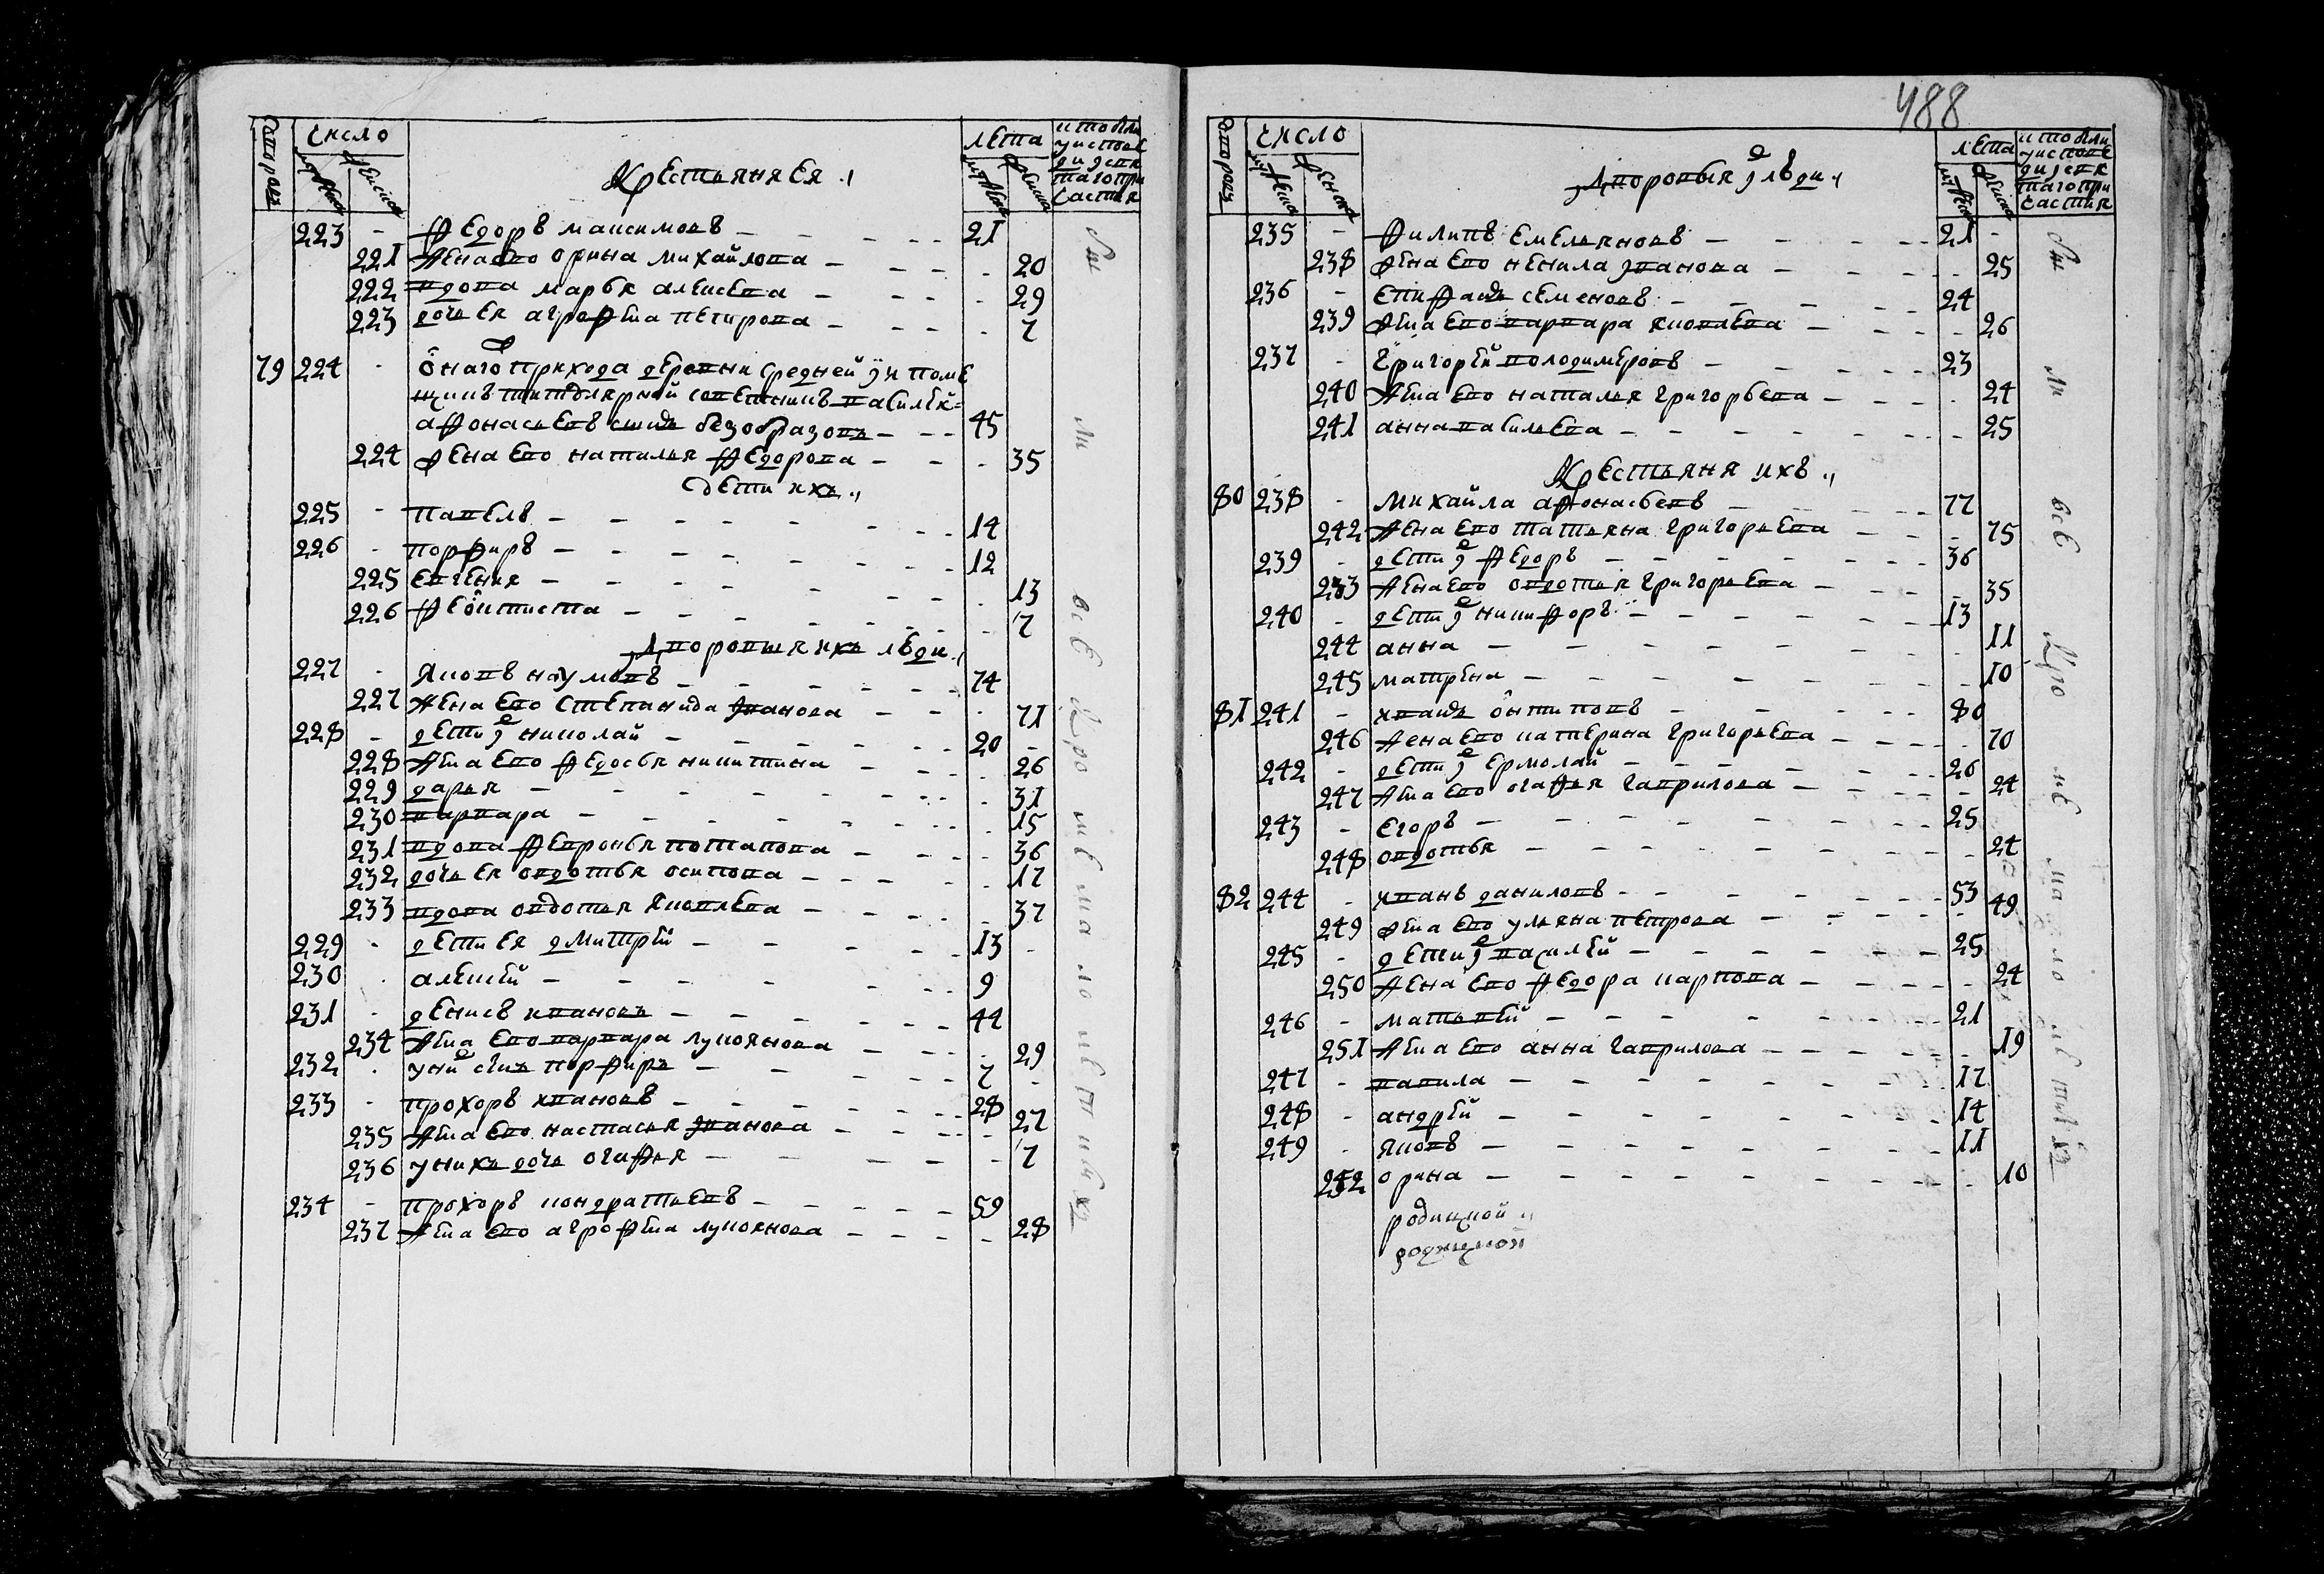 дворовъ
число
мужеска
женска
Крестьяня Ея
лета
мужеска
женска
223 - Федоръ Максимовъ - 21
221 жена ево орина михайлова - 20
222 вдова марья алексева - 29
223 дочь Ея аграфена петрова - 7
79 224 - онаго прихода деревни средней помѣ
щикъ титулярной советникъ василей
афонасьевъ снъ безобразовъ - 45
224 жена ево наталья федорова - 35
дети ихъ
225 - павелъ - 14
226 - порфиръ - 12
225 евгения - 13
226 феоктиста - 7
дворовыя ихъ люди
227 - яковъ наумовъ - 74
227 жена ево степанида иванова - 71
228 - дети ихъ николай - 20
228 жена ево федосья никитина - 26
229 дарья - 31
230 варвара - 15
231 вдова февронья потапова - 36
232 дочь ея овдотья осипова - 17
233 вдова овдотья яковлева - 37
229 - дети ея дмитрей - 13
230 алексей - 9
231 - денисъ ивановъ - 44
234 жена ево варвара лукоянова - 29
232 у них снъ порфиръ - 7
233 - прохоръ ивановъ - 28
235 жена ево настасья иванова - 27
236 у нихъ дочь огафья - 7
234 - прохоръ кондратьевъ - 59
237 жена ево аграфена лукоянова - 28
бы ли все Кро мѣ ма ло лѣ т нихъ
488
дворовъ
число
мужеска
женска
дворовыя их люди
лета
мужеска
женска
235 - филипъ Емельяновъ - 21
238 жена ево ненила иванова - 25
236 - епифанъ семеновъ - 24
239 жена ево варвара яковлева - 26
237 - григорей володимеровъ - 23
240 жена ево наталья григорьева - 24
241 анна васильева - 25
Крестьяня ихъ
80 238 - михайла афонасьевъ - 77
242 жена ево татьяна григорьева - 75
239 - дети их федоръ - 36
233 жена ево овдотья григорьева - 35
240 - дети их никифоръ - 13
244 анна - 11
245 матрена - 10
81 241 - иванъ онтиповъ - 80
246 жена ево катерина григорьева - 70
242 - дети их ермолай - 26
247 жена ево огафья гаврилова - 24
243 - егоръ - 25
248 овдотья - 24
82 244 - иванъ даниловъ - 53
249 жена ево ульяна петрова - 49
245 - дети их василей - 25
250 жена ево федора карпова - 24
246 - матьвей - 21
251 жена ево анна гаврилова - 19
247 - вавила - 17
248 - андрей - 14
249 - яковъ - 11
252 орина - 10
бы ли все Кро мѣ ма ло лѣ тнихъ